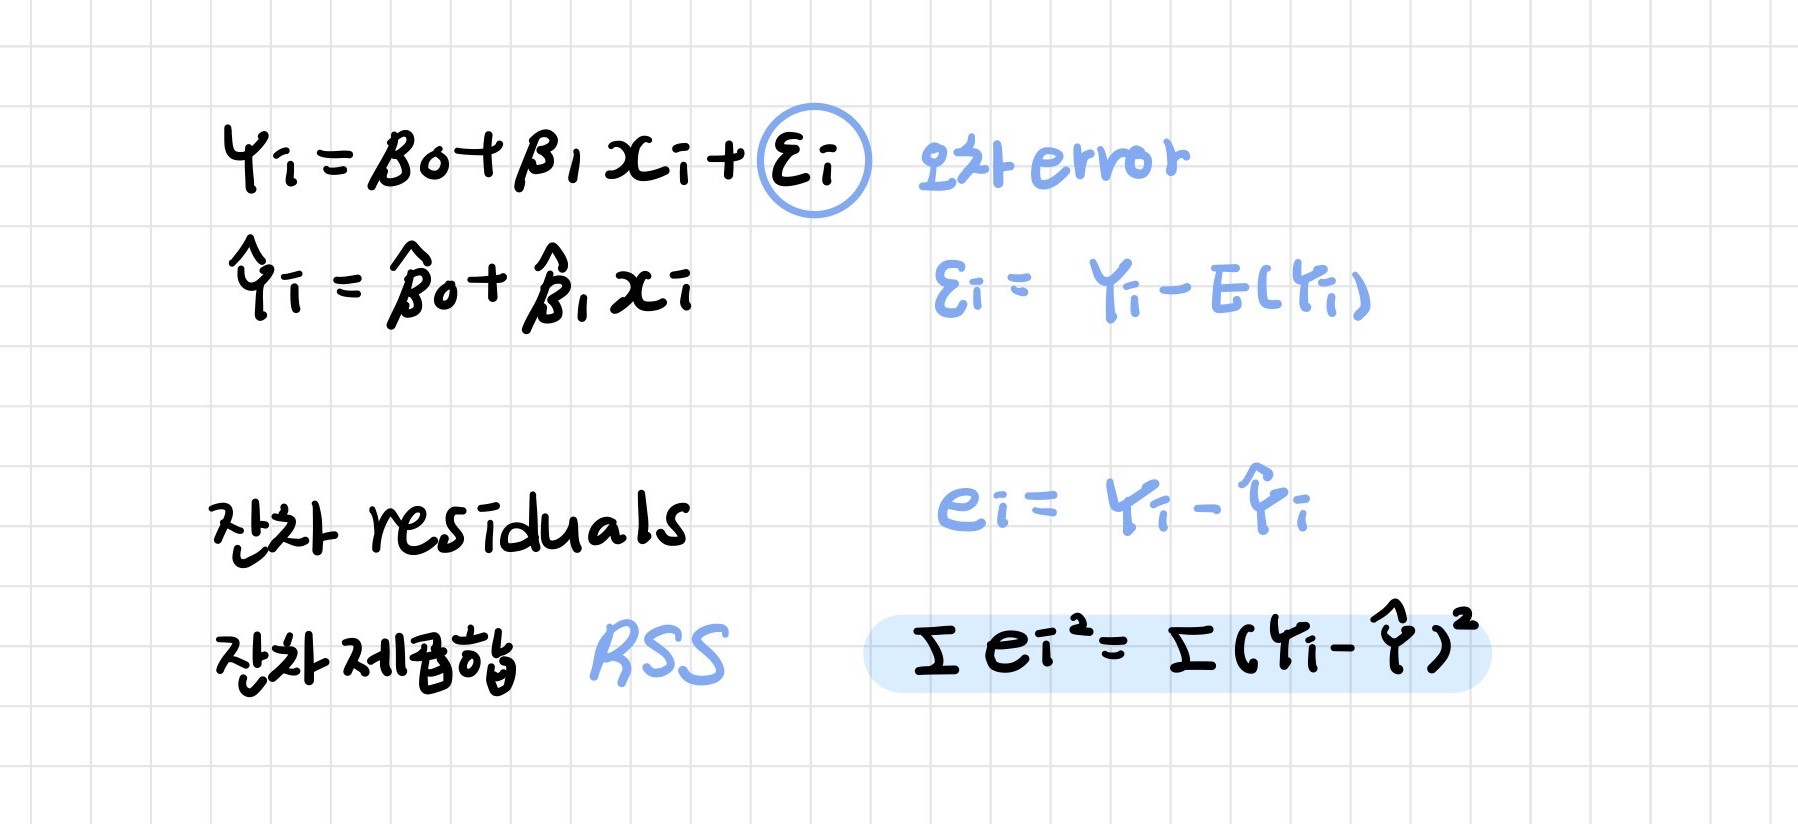 Yi = β0 + β1 xi + εi 오차 error
Ŷi = β̂0 + β̂1 xi εi = Yi - E(Yi)
잔차 residuals ei = Yi - Ŷi
잔차제곱합 RSS Σ ei² = Σ (Yi - Ŷ)²